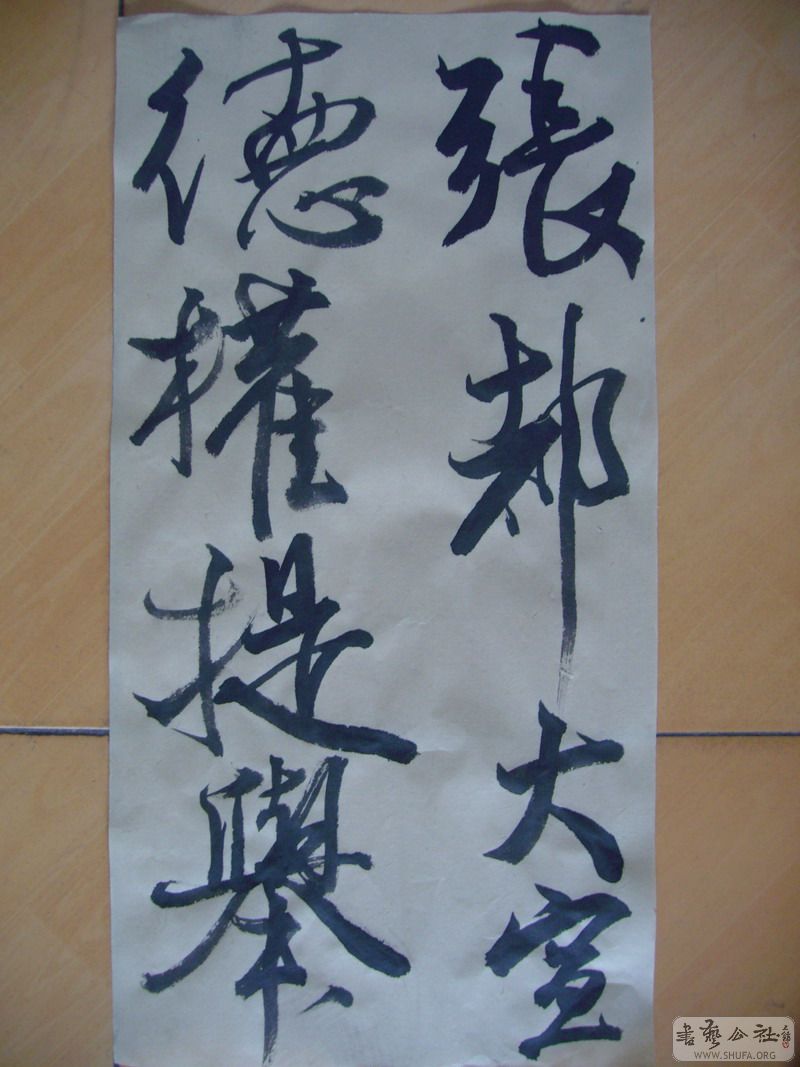 張都大宣
德權提舉
書藝公社
WWW.SHUFA.ORG